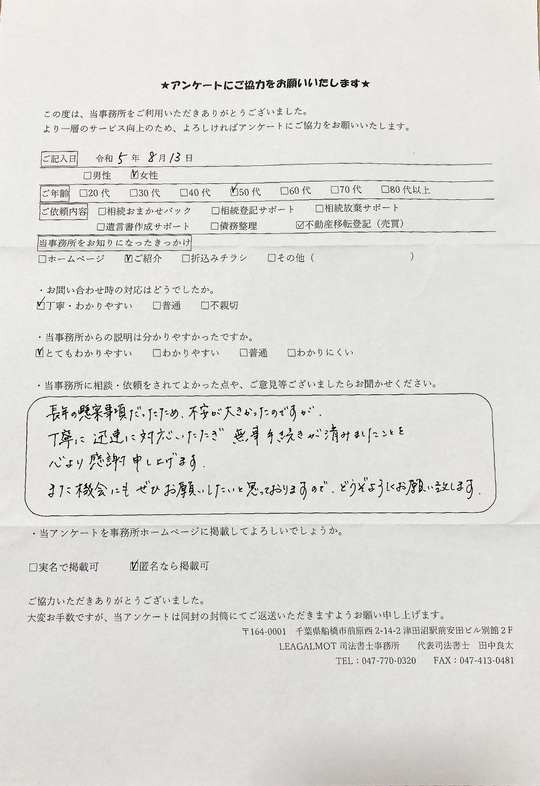 ★アンケートにご協力をお願いいたします★
この度は、当事務所をご利用いただきありがとうございました。
より一層のサービス向上のため、よろしければアンケートにご協力をお願いいたします。
ご記入日 令和 5 年 8 月 13 日
□男性 ☑女性
ご年齢 □20代 □30代 □40代 ☑50代 □60代 □70代 □80代以上
ご依頼内容 □相続おまかせパック □相続登記サポート □相続放棄サポート
□遺言書作成サポート □債務整理 ☑不動産移転登記（売買）
当事務所をお知りになったきっかけ
□ホームページ ☑ご紹介 □折込みチラシ □その他（ ）
・お問い合わせ時の対応はどうでしたか。
☑丁寧・わかりやすい □普通 □不親切
・当事務所からの説明は分かりやすかったですか。
☑とてもわかりやすい □わかりやすい □普通 □わかりにくい
・当事務所に相談・依頼をされてよかった点や、ご意見等ございましたらお聞かせください。
長年の懸案事項だったため、不安が大きかったのですが、
丁寧に迅速に対応いただき無事手続きが済みましたことを
心より感謝申し上げます。
また機会にもぜひお願いしたいと思っておりますので、どうぞよろしくお願い致します。
・当アンケートを事務所ホームページに掲載してよろしいでしょうか。
□実名で掲載可 ☑匿名なら掲載可
ご協力いただきありがとうございました。
大変お手数ですが、当アンケートは同封の封筒にてご返送いただきますようお願い申し上げます。
〒164-0001 千葉県船橋市前原西2-14-2津田沼駅前安田ビル別館2F
LEAGALMOT司法書士事務所 代表司法書士 田中良太
TEL：047-770-0320 FAX：047-413-0481